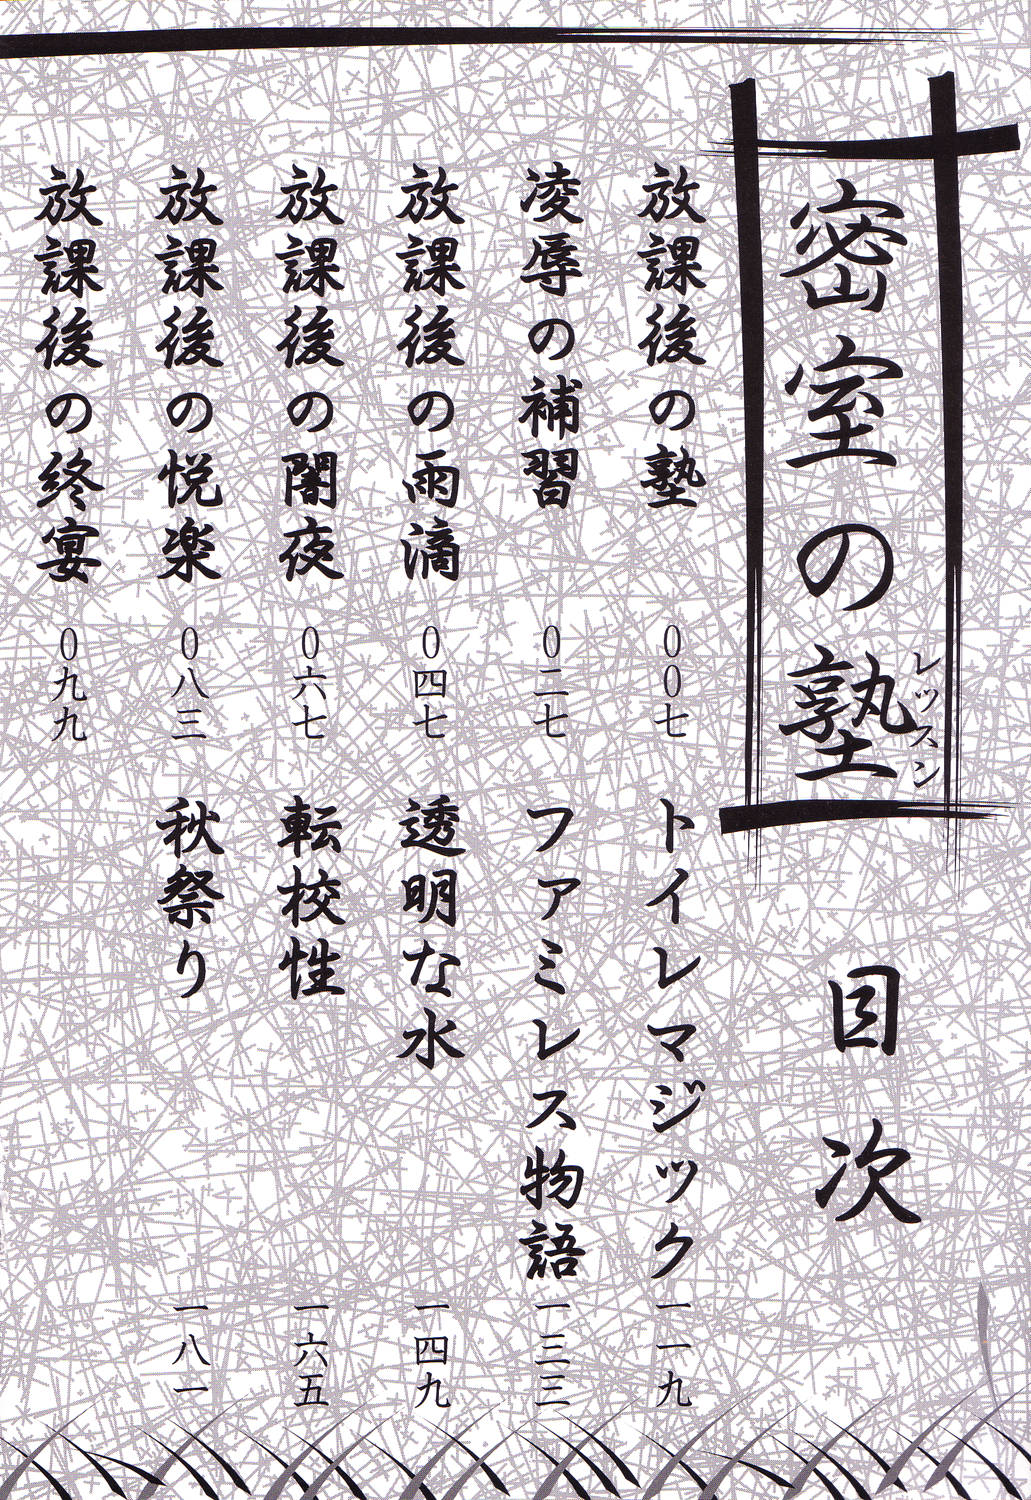 密室の塾
レッスン
目次
放課後の塾 〇〇七
凌辱の補習 〇二七
放課後の雨滴 〇四七
放課後の闇夜 〇六七
放課後の悦楽 〇八三
放課後の終宴 〇九九
トイレマジック 一一九
ファミレス物語 一三三
透明な水 一四九
転校性 一六五
秋祭り 一八一